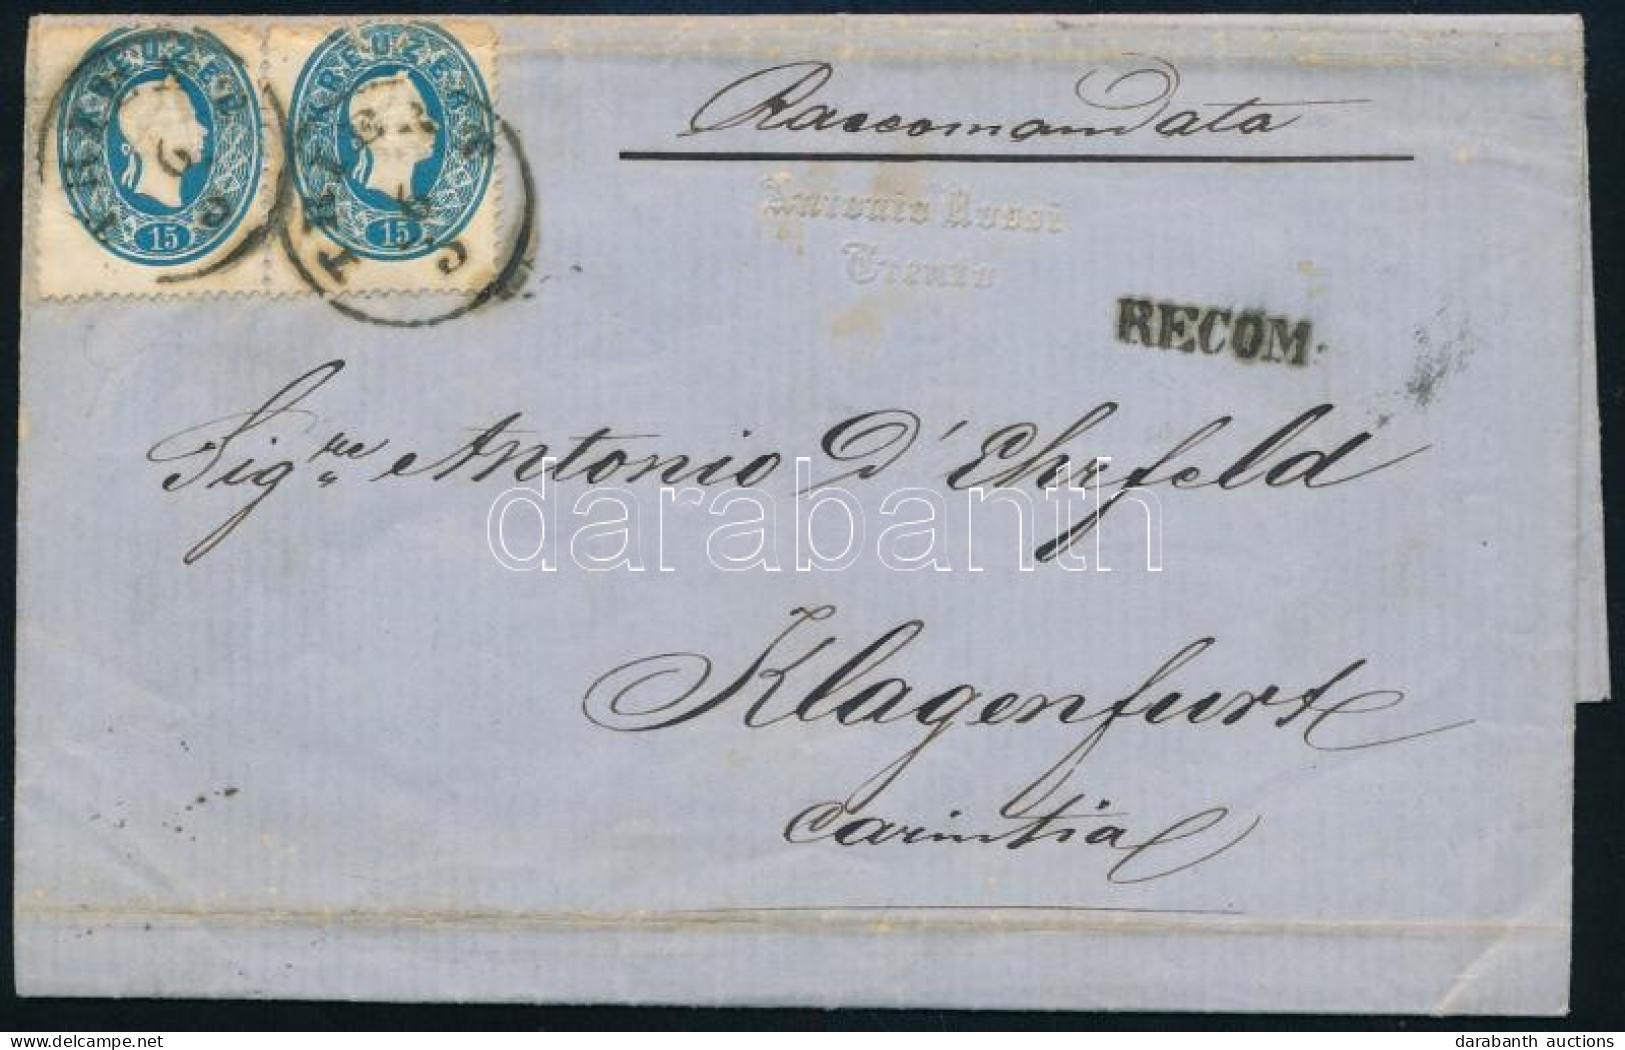 KREUZER KREUZER
15 15
Raccomandata
Antonio Rossi
Trento
RECOM.
Sig.re Antonio D'Ehrfeld
darabanth
Klagenfurt
Carintia
darabanth auctions